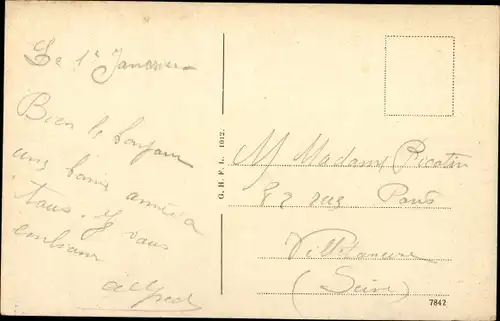 Le 1er Janvier
Bien le bonjour
une bonne année a
tous. Je vous
embrasse
Alfred
G. H. F. L. 1012.
M. Madame Picatin
82 rue Paris
Villetaneuse
(Seine)
7842